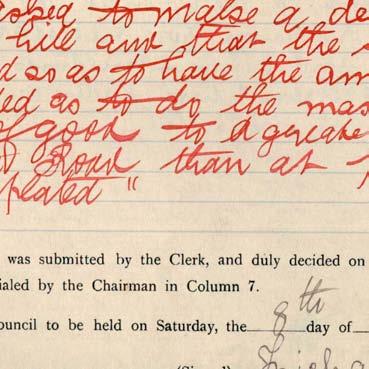 asked to make a de
hill and that the s
d so as to have the am
ded as to do the mas
of good to a greate
d Road than at p
plated "
was submitted by the Clerk, and duly decided on
ialed by the Chairman in Column 7.
ouncil to be held on Saturday, the 8th day of
(Signed)